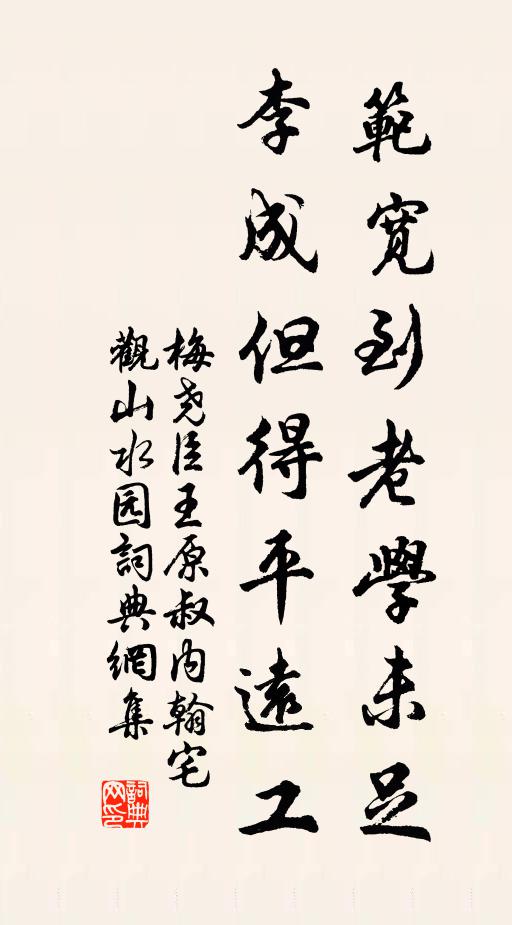 範寬到老學未足
李成但得平遠工
梅尧臣王原叔内翰宅
觀山水园詞典網集
詞典网印